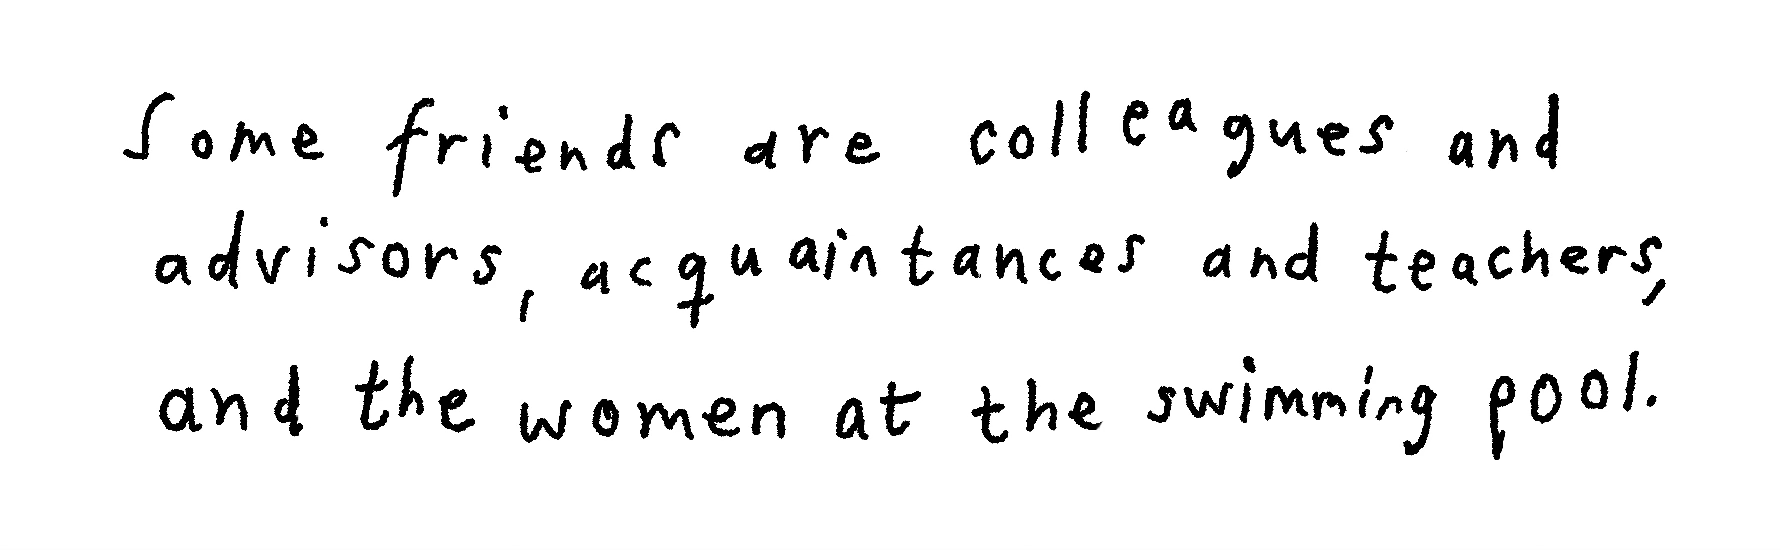 Some friends are colleagues and
advisors, acquaintances and teachers,
and the women at the swimming pool.